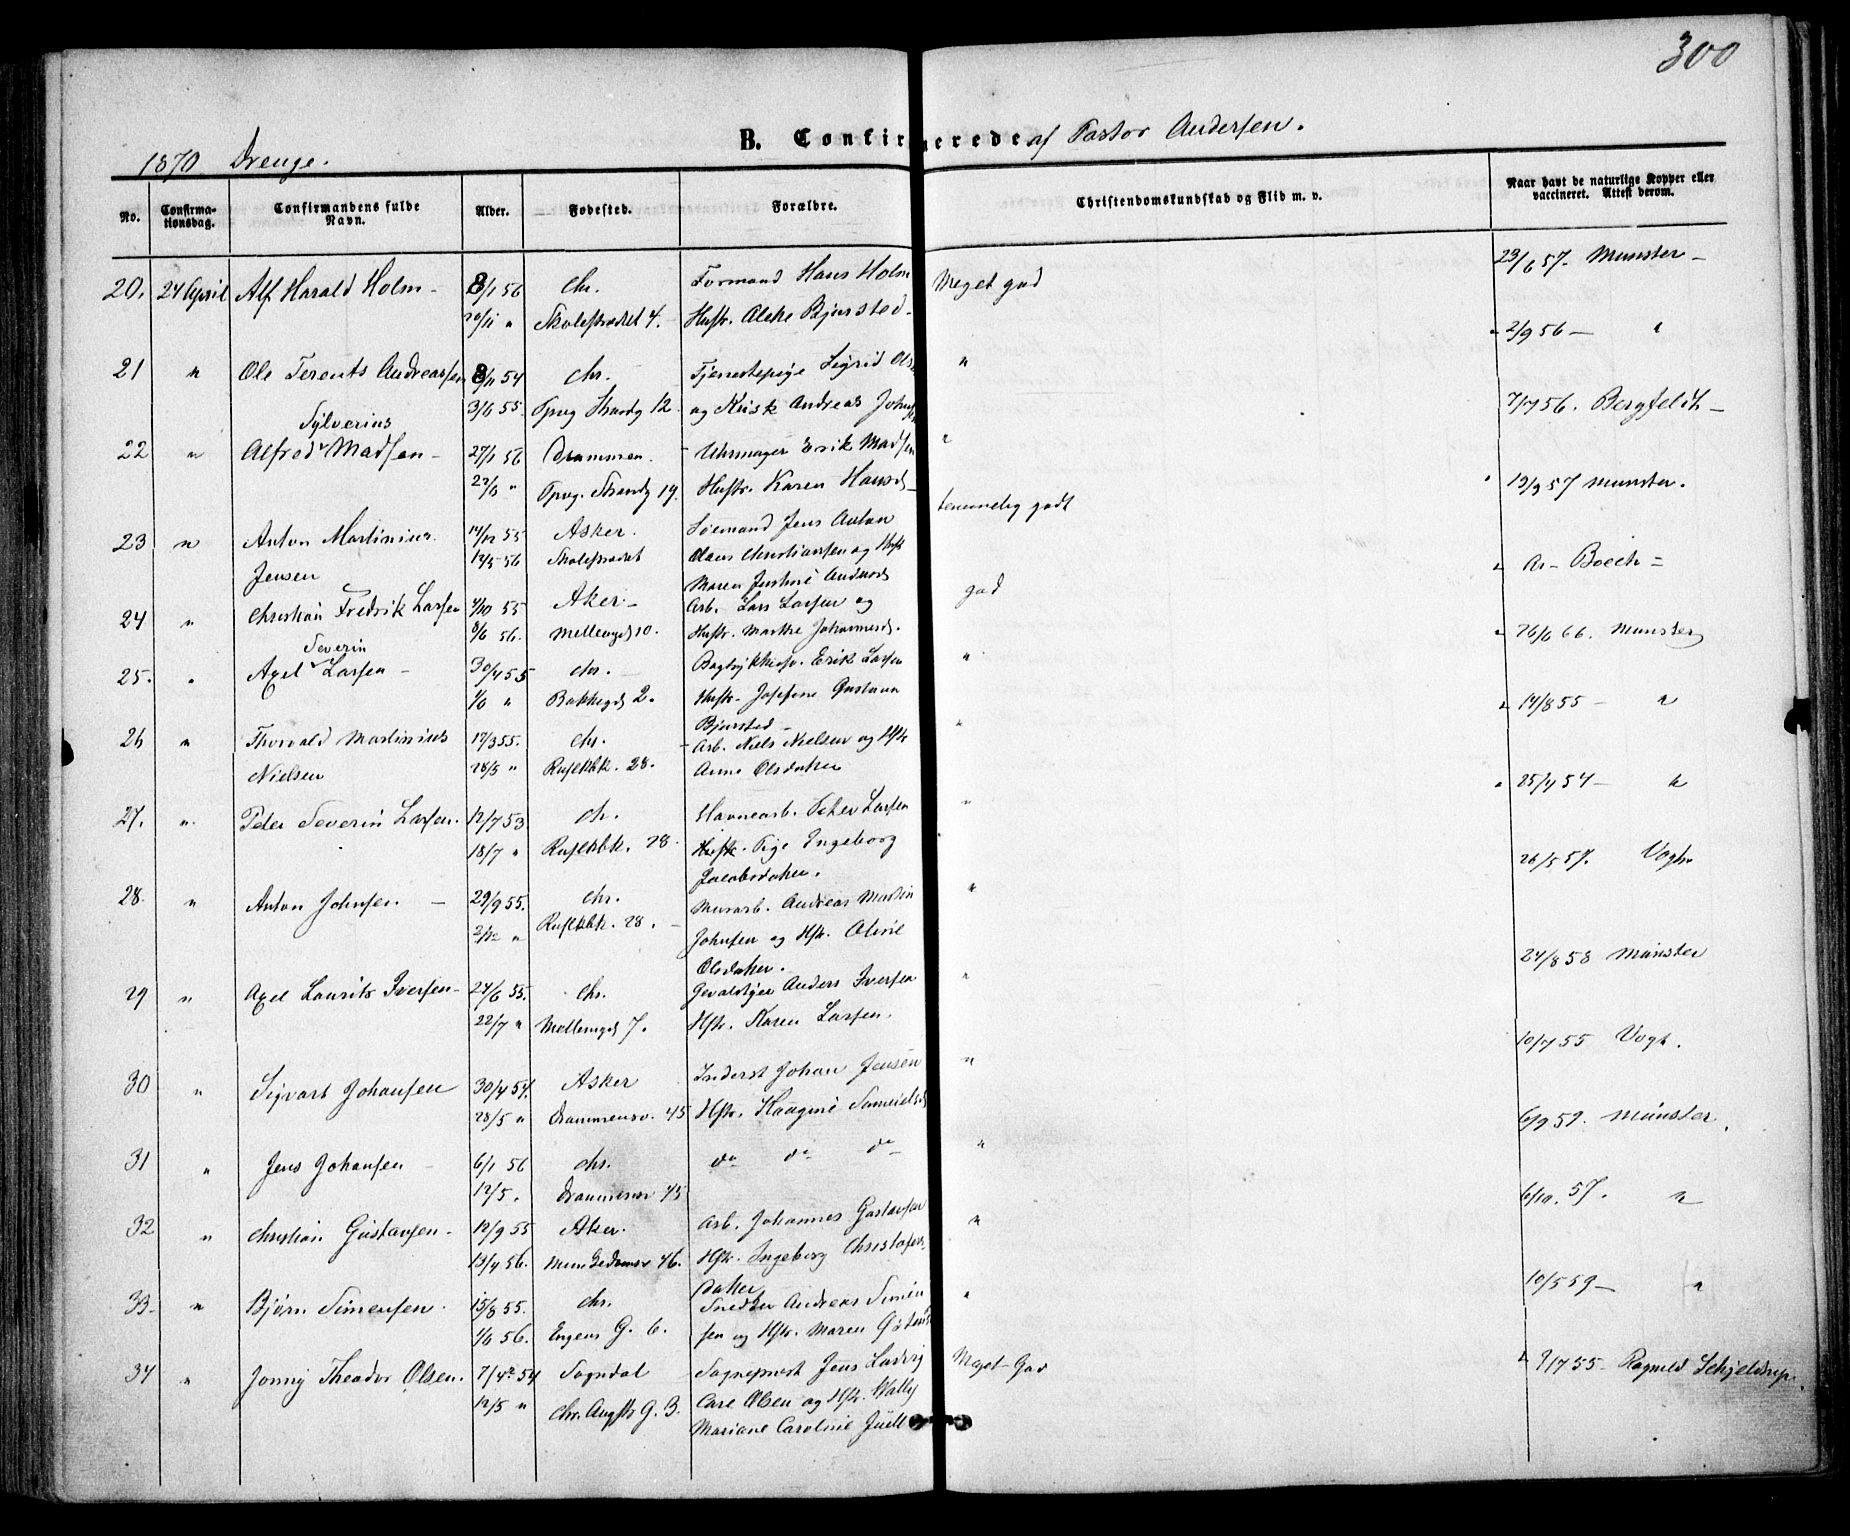 300
B. Confirmerede af Pastor Andersen.
1870 Drenge.
No. Confirmationsdag. Confirmandens fulde Navn. Alder. Fødested. Forældre. Christendomskundskab og Flid m. v. Naar havt de naturlige Kopper eller vaccineret. Attest derom.
20. 24 April Alf Harald Holm - 8/1 56 Chr. Formand Hans Holm Meget god 23/6 57. Munster -
20/11 " Skolestrædet 4. Hustr. Bjursted -
21 " Ole Andreassen 8/11 54 Chr. Tjenestepige Sigrid " 2/9 56 - "
3/6 55. Tpvg Strandg 12. og Andreas
22 " Alfred Sylverius Madsen - 27/1 56 Drammen. Uhrmager Erik Madsen " 7/7 56. Bergfeldt -
22/6 " Tpvg. Strandg 19. Hustr. Karen
23 " Anton Martinius 14/12 55 Asker. Sømand Jens Anton temmelig godt 19/9 57 Munster.
Jensen 12/5 56 Skolestrædet Claus Christiansen og Hust
Maren
24 " Christian Fredrik Larsen 4/10 55 Aker - Arb. Lars Larsen og god Boeck =
8/6 56. Mellemgd 10. Hustr. Marthe Johannesd.
25. " Axel Severin Larsen - 30/4 55 Chr. - Erik Larsen " 26/6 66. Munster
1/6 " Bakkegd 2. Hustr. Josefine Gustava
Bjursted -
26 " Thorvald Martinius 17/3 55. Chr. Arb. Niels Nielsen og Hstr " 14/8 55 - "
Nielsen 28/5 " Ruslkbk. 28. Anne Olsdatter
27. " Peter Severin Larsen. 12/7 53 Chr. Havnearb. Peter Larsen " 25/4 54 - "
18/7 " Ruslkbk. 28. Pige Ingeborg
Jacobsdatter.
28. " Anton Johnsen - 29/9 55. Chr. Murarb. Andreas Martin " 26/5 57. Vogt
2/12 " Ruslkbk. 28. - Johnsen og Hstr. Oline
Olsdatter.
29 " Axel Laurits Iversen - 24/6 55. Chr. Gevaldiger Anders Iversen " 24/8 58 Münster
22/7 " Mellemgd 7. Hstr. Karen Larsen.
30 " Sigvart Johansen 30/4 54. Asker Inderst Johan Jensen " 10/7 55 Vogt.
28/5 " Drammensv. 45 Hstr.
31 " Jens Johansen - 6/1 56 Chr. do do do " 6/9 59. Münster.
12/5. " Drammensv 45
32 " Christian Gustavsen - 12/9 55 Aker. Arb. Johannes Gustavsen " 6/10. 57. "
13/4 56. 46. Hstr. Ingeborg Christofers
Datter
33. " Bjørn Simensen. 15/8 55. Chr. Snedker Andreas Simen " 10/5 59 - "
1/6 56. Engens G. 6. sen og Hstr. Maren
34 " Jonny Theodor Olsen. 7/4 54 Sogndal Sogneprest Jens Ludvig Meget God 9/7 55 - Ragnild Schjeldrup.
12/5 " Chr. Augsts G. 3. Carl Olsen og Hstr. Wally
Mariane Caroline Juell